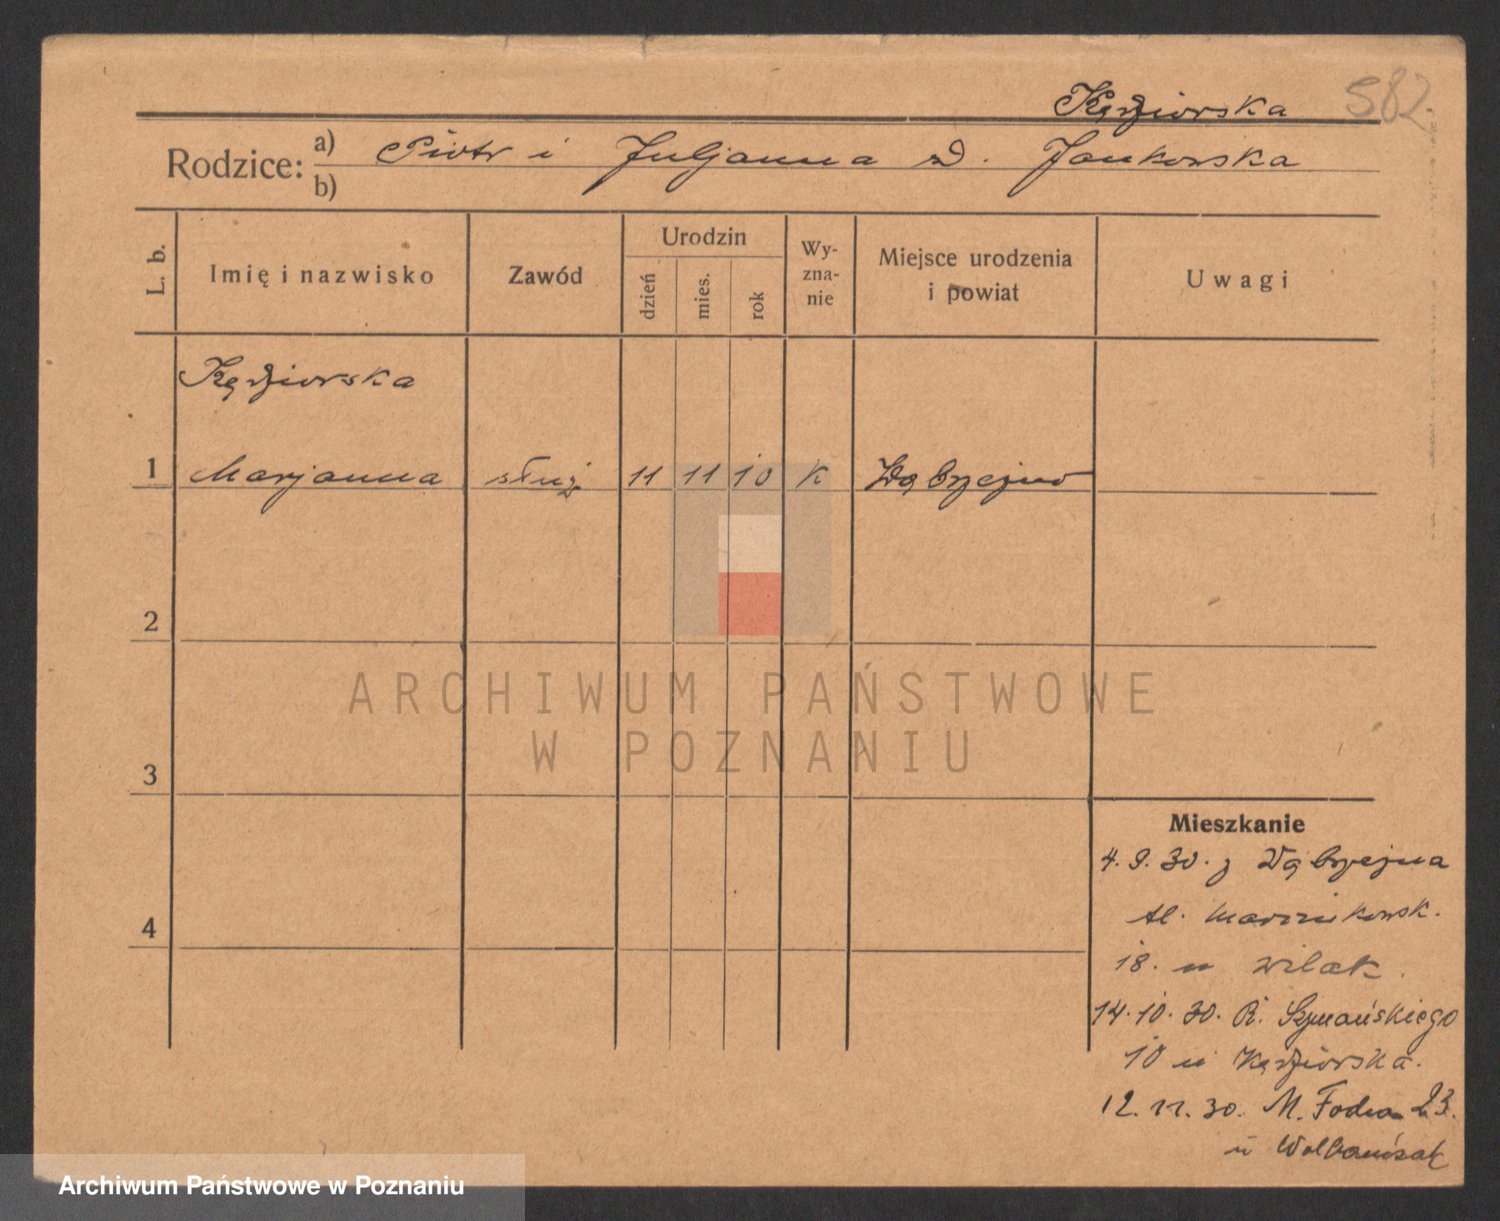 Kędziorska 582
Rodzice: a) Piotr i Juljanna D. Jankowska
b)
L. b.
Imię i nazwisko
Zawód
Urodzin
dzień
mies.
rok
Wy-
zna-
nie
Miejsce urodzenia
i powiat
Uwagi
Kędziorska
1 Marjanna służ 11 11 10 K Dąbrzejewo
2
ARCHIWUM PAŃSTWOWE
W POZNANIU
3
Mieszkanie
4. 9. 30. z Dąbrzejewa
4
Al. Marcinkowsk.
18. u Wilak.
14. 10. 30. R. Szymańskiego
10 u Kędziorska.
12. 11. 30. M. 23.
u
Archiwum Państwowe w Poznaniu